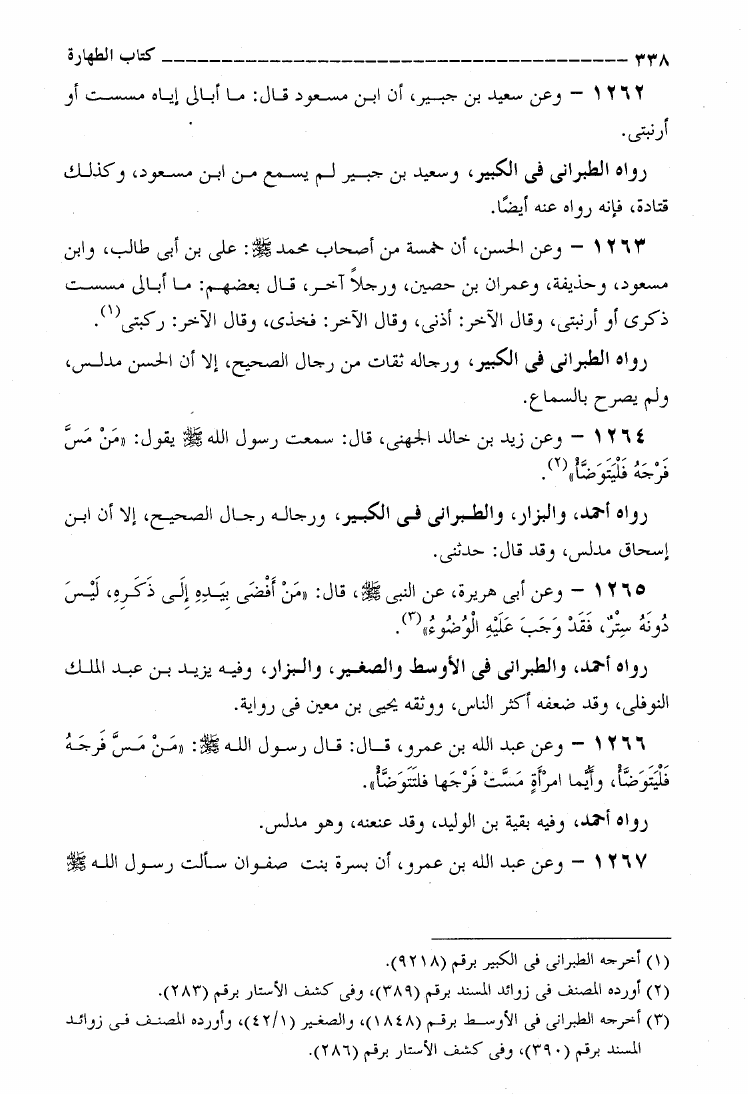 ٣٣٨ ــــــــــــــــــــــــــــــــــــــــ كتاب الطهارة
١٢٦٢ – وعن سعيد بن جبير، أن ابن مسعود قال: ما أبالى إياه مسست أو
أرنبتى.
رواه الطبرانى فى الكبير، وسعيد بن جبير لم يسمع من ابن مسعود، وكذلك
قتادة، فإنه رواه عنه أيضًا.
١٢٦٣ – وعن الحسن، أن خمسة من أصحاب محمد ﷺ: على بن أبى طالب، وابن
مسعود، وحذيفة، وعمران بن حصين، ورجلاً آخر، قال بعضهم: ما أبالى مسست
ذكرى أو أرنبتى، وقال الآخر: أذنى، وقال الآخر: فخذى، وقال الآخر: ركبتى(١).
رواه الطبرانى فى الكبير، ورجاله ثقات من رجال الصحيح، إلا أن الحسن مدلس،
ولم يصرح بالسماع.
١٢٦٤ – وعن زيد بن خالد الجهنى، قال: سمعت رسول الله ﷺ يقول: «مَنْ مَسَّ
فَرْجَهُ فَلْيَتَوَضَّأْ»(٢).
رواه أحمد، والبزار، والطبرانى فى الكبير، ورجاله رجال الصحيح، إلا أن ابن
إسحاق مدلس، وقد قال: حدثنى.
١٢٦٥ – وعن أبى هريرة، عن النبى ﷺ، قال: «مَنْ أَفْضَى بِيَدِهِ إِلَى ذَكَرِهِ، لَيْسَ
دُونَهُ سِتْرٌ، فَقَدْ وَجَبَ عَلَيْهِ الْوُضُوءُ»(٣).
رواه أحمد، والطبرانى فى الأوسط والصغير، والبزار، وفيه يزيد بن عبد الملك
النوفلى، وقد ضعفه أكثر الناس، ووثقه يحيى بن معين فى رواية.
١٢٦٦ – وعن عبد الله بن عمرو، قال: قال رسول الله ﷺ: «مَنْ مَسَّ فَرجَهُ
فَلْيَتَوَضَّأْ، وأَيُّما امرْأَةٍ مَسَّتْ فَرْجَها فلتَتَوَضَّأْ».
رواه أحمد، وفيه بقية بن الوليد، وقد عنعنه، وهو مدلس.
١٢٦٧ – وعن عبد الله بن عمرو، أن بسرة بنت صفوان سألت رسول الله ﷺ
(١) أخرجه الطبرانى فى الكبير برقم (٩٢١٨).
(٢) أورده المصنف فى زوائد المسند برقم (٣٨٩)، وفى كشف الأستار برقم (٢٨٣).
(٣) أخرجه الطبرانى فى الأوسط برقم (١٨٤٨)، والصغير (٤٢/١)، وأورده المصنف فى زوائد
المسند برقم (٣٩٠)، وفى كشف الأستار برقم (٢٨٦).